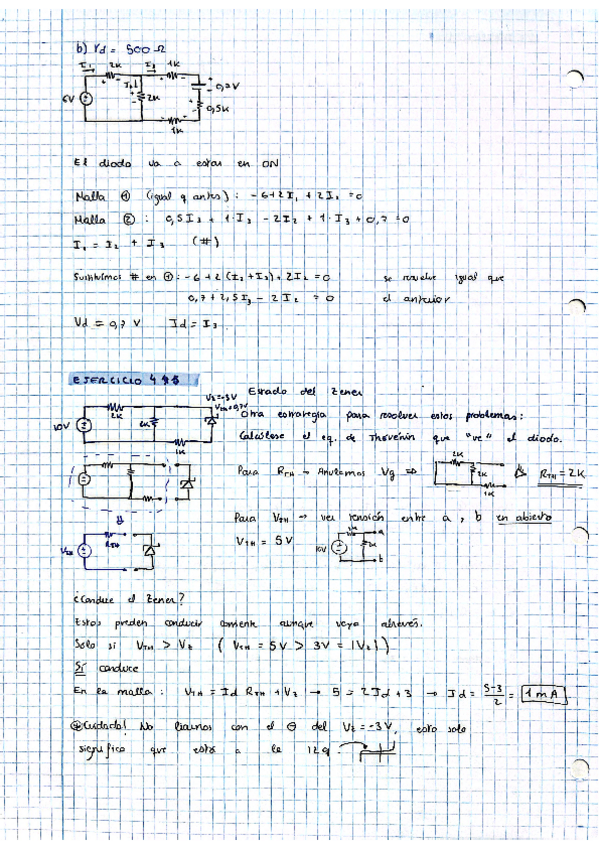 b) rd = 500 Ω
I₁ 2K I₃ 1K
6V I₂ 2K 0,7V
0,5K
1K
El diodo va a estar en ON
Malla ① (igual q antes) : -6+2I₁ + 2I₂ = 0
Malla ② : 0,5I₃ + 1·I₃ - 2I₂ + 1·I₃ + 0,7 = 0
I₁ = I₂ + I₃ (#)
Sustituimos # en ①: -6 + 2 (I₂+I₃) + 2I₂ = 0 se resuelve igual que
0,7 + 2,5I₃ - 2I₂ = 0 el anterior
Vd = 0,7 V Id = I₃
EJERCICIO 4
Estado del zener
2K Vz=-3V
10V 2K
1K
Otra estrategia para resolver estos problemas:
Calcúlese el eq. de Thevenin que "ve" el diodo.
Para RTH → Anulamos Vg ⇒ 2K 2K 1K RTH = 2K
Para VTH → ver tensión entre a, b en abierto
VTH = 5V 10V 2K a b
VTH RTH
¿Conduce el zener?
Estos pueden conducir corriente aunque vaya alrevés.
Solo si VTH > Vz ( VTH = 5V > 3V = |Vz| )
Sí conduce
En la malla : VTH = Id RTH + Vz → 5 = 2Id + 3 → Id = 5-3/2 = 1mA
¡Cuidado! No liarnos con el ⊖ del Vz = -3V, esto solo
significa que está a la izq.